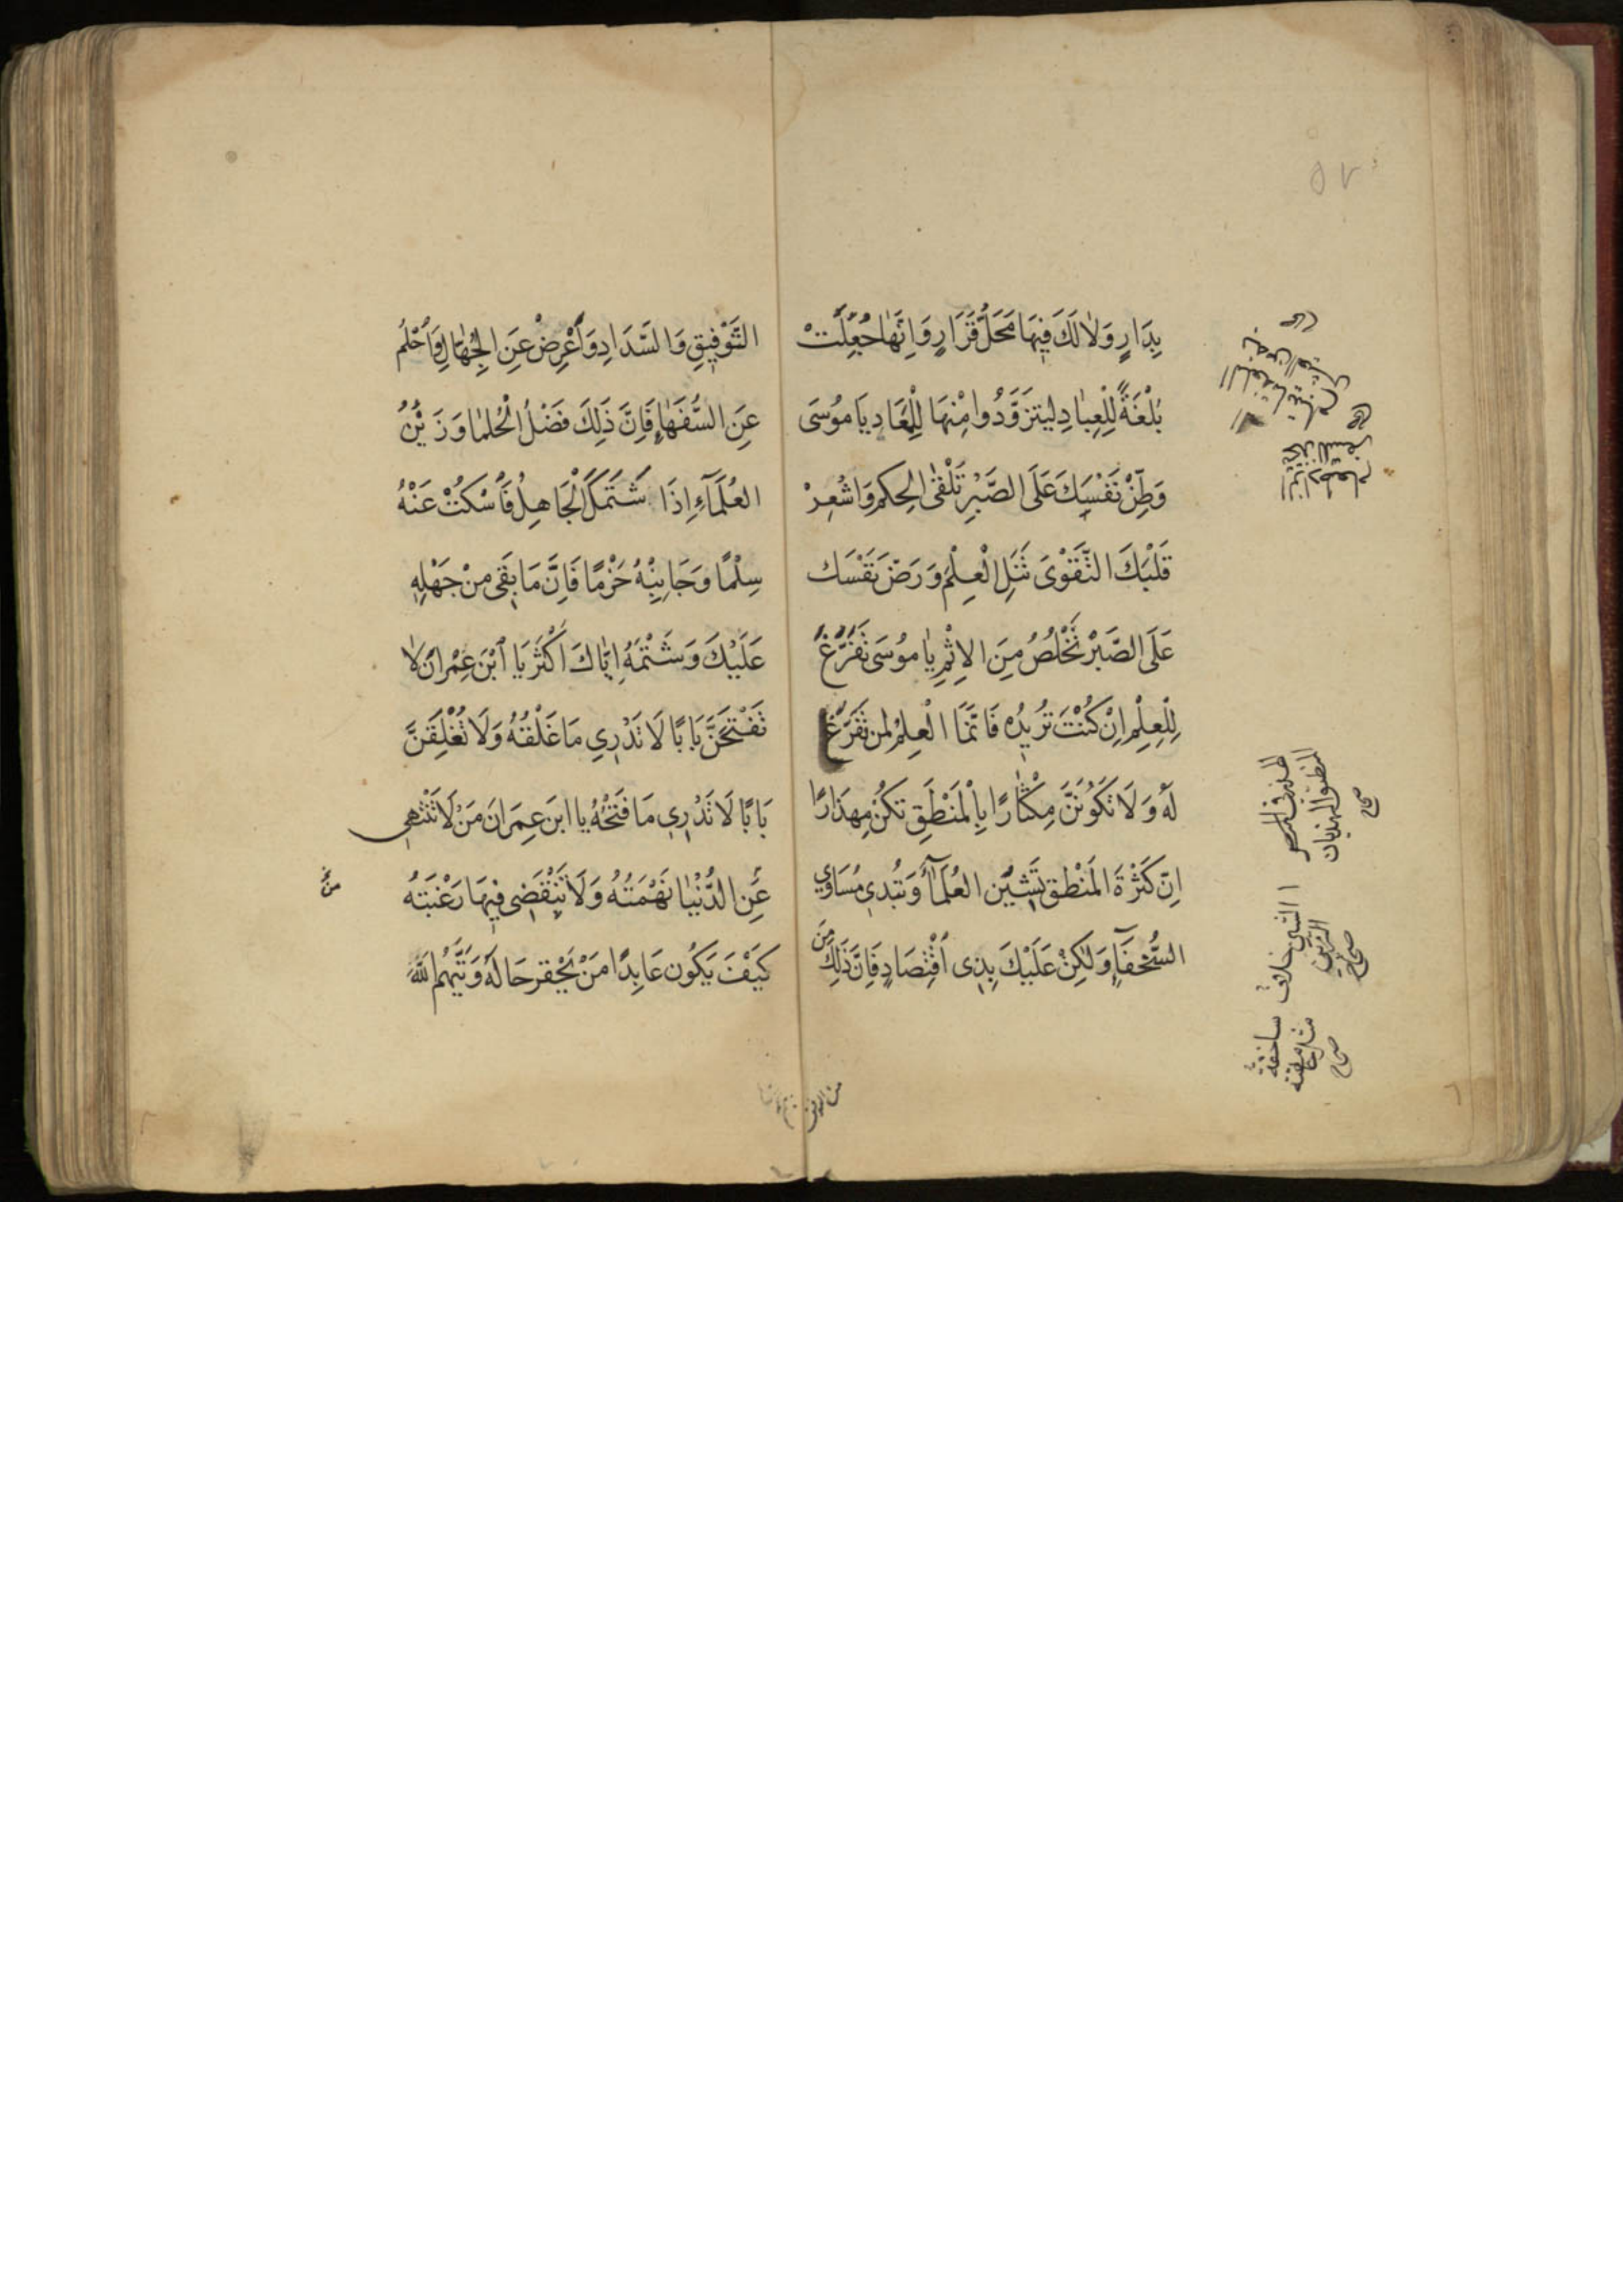 بِدَارٍ وَلَا لَكَ فِيهَا مَحَلُّ قَرَارٍ وَاِنَّهَا جُعِلَتْ
بُلْغَةً لِلْعِبَادِ لِيتزَوَّدُوا مِنْهَا لِلْمَعَادِ يَا مُوسَى
وَطِّنْ نَفْسِكَ عَلَى الصَّبْرِ تَلْقَى الحِكم وَاشْعِرْ
قَلْبَكَ التَّقْوَى تَنَلِ الْعِلْمَ وَرَضّ نَفْسَك
عَلَى الصَّبْرِ تَخْلُصُ مِنَ الاِثْمِ يَا مُوسَى تَفَرَّغْ
لِلْعِلْمِ اِنْ كُنْتَ تُرِيدُه فَاِنَّمَا الْعِلْمُ لمن تَفَرَّغَ
لَهُ وَلَا تَكُونَنَّ مِكْثَارًا بِالْمَنْطِقِ تكُنْ مِهذَارًا
اِنّ كَثْرَةَ المَنْطق تَشِيْن العُلَمَآءُ وَتُبْدِي مُسَاوِي
السُّخفَآءِ وَلَكِنْ عَلَيْكَ بِذِى اقْتِصَادٍ فَاِنَّ ذَلِكَ مِنَ
الهذر فى المـ
المنطق والهذيان
صحاح
الشين خلاف
الزين
صحاح
صحاح
التَّوْفِيقِ وَالسَّدَادِ وَأَعْرِضْ عَنِ الجُهّالِ وَأَحْلُم
عَنِ السُّفَهَاءِ فَاِنَّ ذَلِكَ فَضْلُ الْحُلمَا وَزَيْنُ
العُلَمَآءِ اِذَا شَتَمَكَ الْجَاهِلُ فَاسْكتْ عَنْهُ
سِلْمًا وَجَانِبْهُ حَزْمًا فَاِنَّ مَا بقَى مِنْ جَهْلِهِ
عَلَيْكَ وَشَتْمَهُ اِيَّاكَ اَكْثَر يَا ابْنَ عِمْرانَ لَا
تَفْتَحَنَّ بَابًا لَا تَدْرِي مَا غَلْقُهُ وَلَا تُغْلِقَنَّ
بَابًا لَا تَدْرِي مَا فَتحُهُ يا ابنَ عِمرَانَ مَنْ لَا تَنْتَهِي
عَنِ الدُّنْيَا نَهْمَتُهُ وَلَا تَنْقَضِى فِيهَا رَغْبَتهُ
مَنْ
كَيْفَ يَكُون عَابِدًا مَنْ يَحْقر حَالَهُ وَيَتَّهِمُ اللهَ